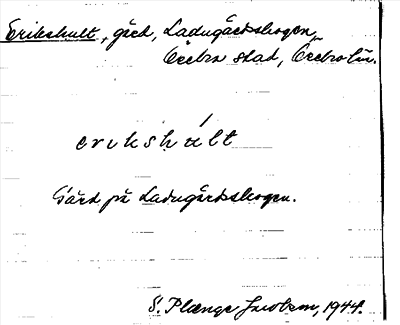 Erikshult, gård, Ladugårdsskogen,
Örebro stad, Örebro län.
erikshúlt
Gård på Ladugårdsskogen.
S. Plænge Jacobson, 1944.